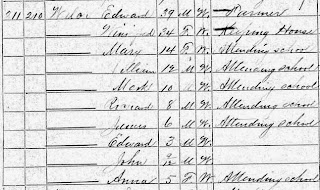 211 210 Edward 39 M W. Farmer
34 F W. Keeping House
Mary 14 F W. Attending school
12 M W. Attending school
10 M W. Attending school
8 M W. Attending school
James 6 M W. Attending school
Edward 3 M W.
John M W.
Anna 5 F W. Attending school